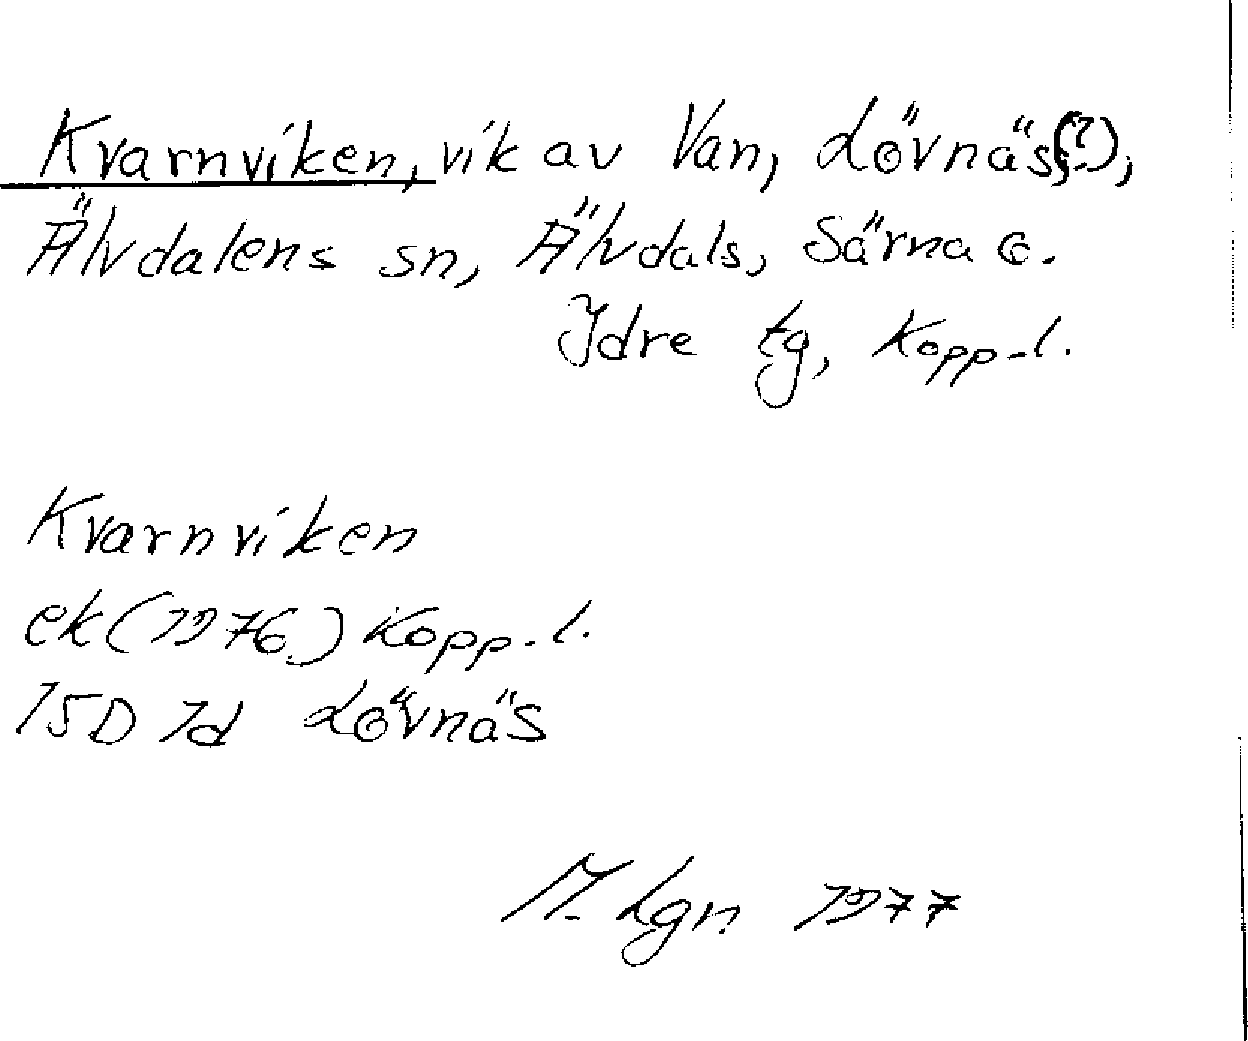 Kvarnviken, vik av Van, Lövnäs(?),
Älvdalens sn, Älvdals, Särna o.
Idre tg, Kopp-l.
Kvarnviken
ek (1976) Kopp.l.
15D 1d Lövnäs
M. Lgn 1977